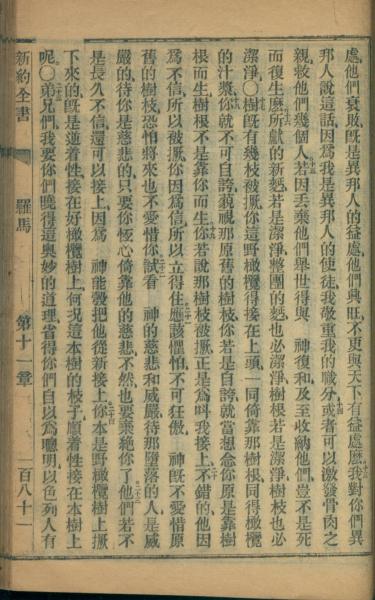 處他們衰敗旣是異那人的益處他們興旺不更與天下有益處麽我對你們異
邦人說這話因爲我是異邦人的使徒我敬重我的職分或者可以激發骨肉之
親救他們幾個人若因丟棄他們舉世得與 神復和及至收納他們豈不是死
而復生麽所獻的新麪若是潔淨整團的麪也必潔淨樹根若是潔淨樹枝也必
潔淨〇樹旣有幾枝被撅你這野橄欖得接在上頭一同倚靠那樹根同得橄欖
的汁漿你就不可自誇藐視那原舊的樹枝你若是自誇就當想念你原是靠樹
根而生樹根不是靠你而生你若說那樹枝被撅正是爲叫我接上不錯的他因
爲不信所以被撅你因爲信所以立得住應該懼怕不可狂傲 神旣不愛惜原
舊的樹枝恐怕將來也不愛惜你試看 神的慈悲和威嚴待那墮落的人是威
嚴的待你是慈悲的只要你恆心倚靠他的慈悲不然也要棄絕你了他們若不
是長久不信還可以接上因爲 神能彀把他從新接上你本是野橄欖樹上撅
下來的旣是逆着性接在好橄欖樹上何况這本樹的枝子順着性接在本樹上
呢〇弟兄們我要你們曉得這奧妙的道理省得你們自以爲聰明以色列人有
新約全書 羅馬 第十一章 百八十一